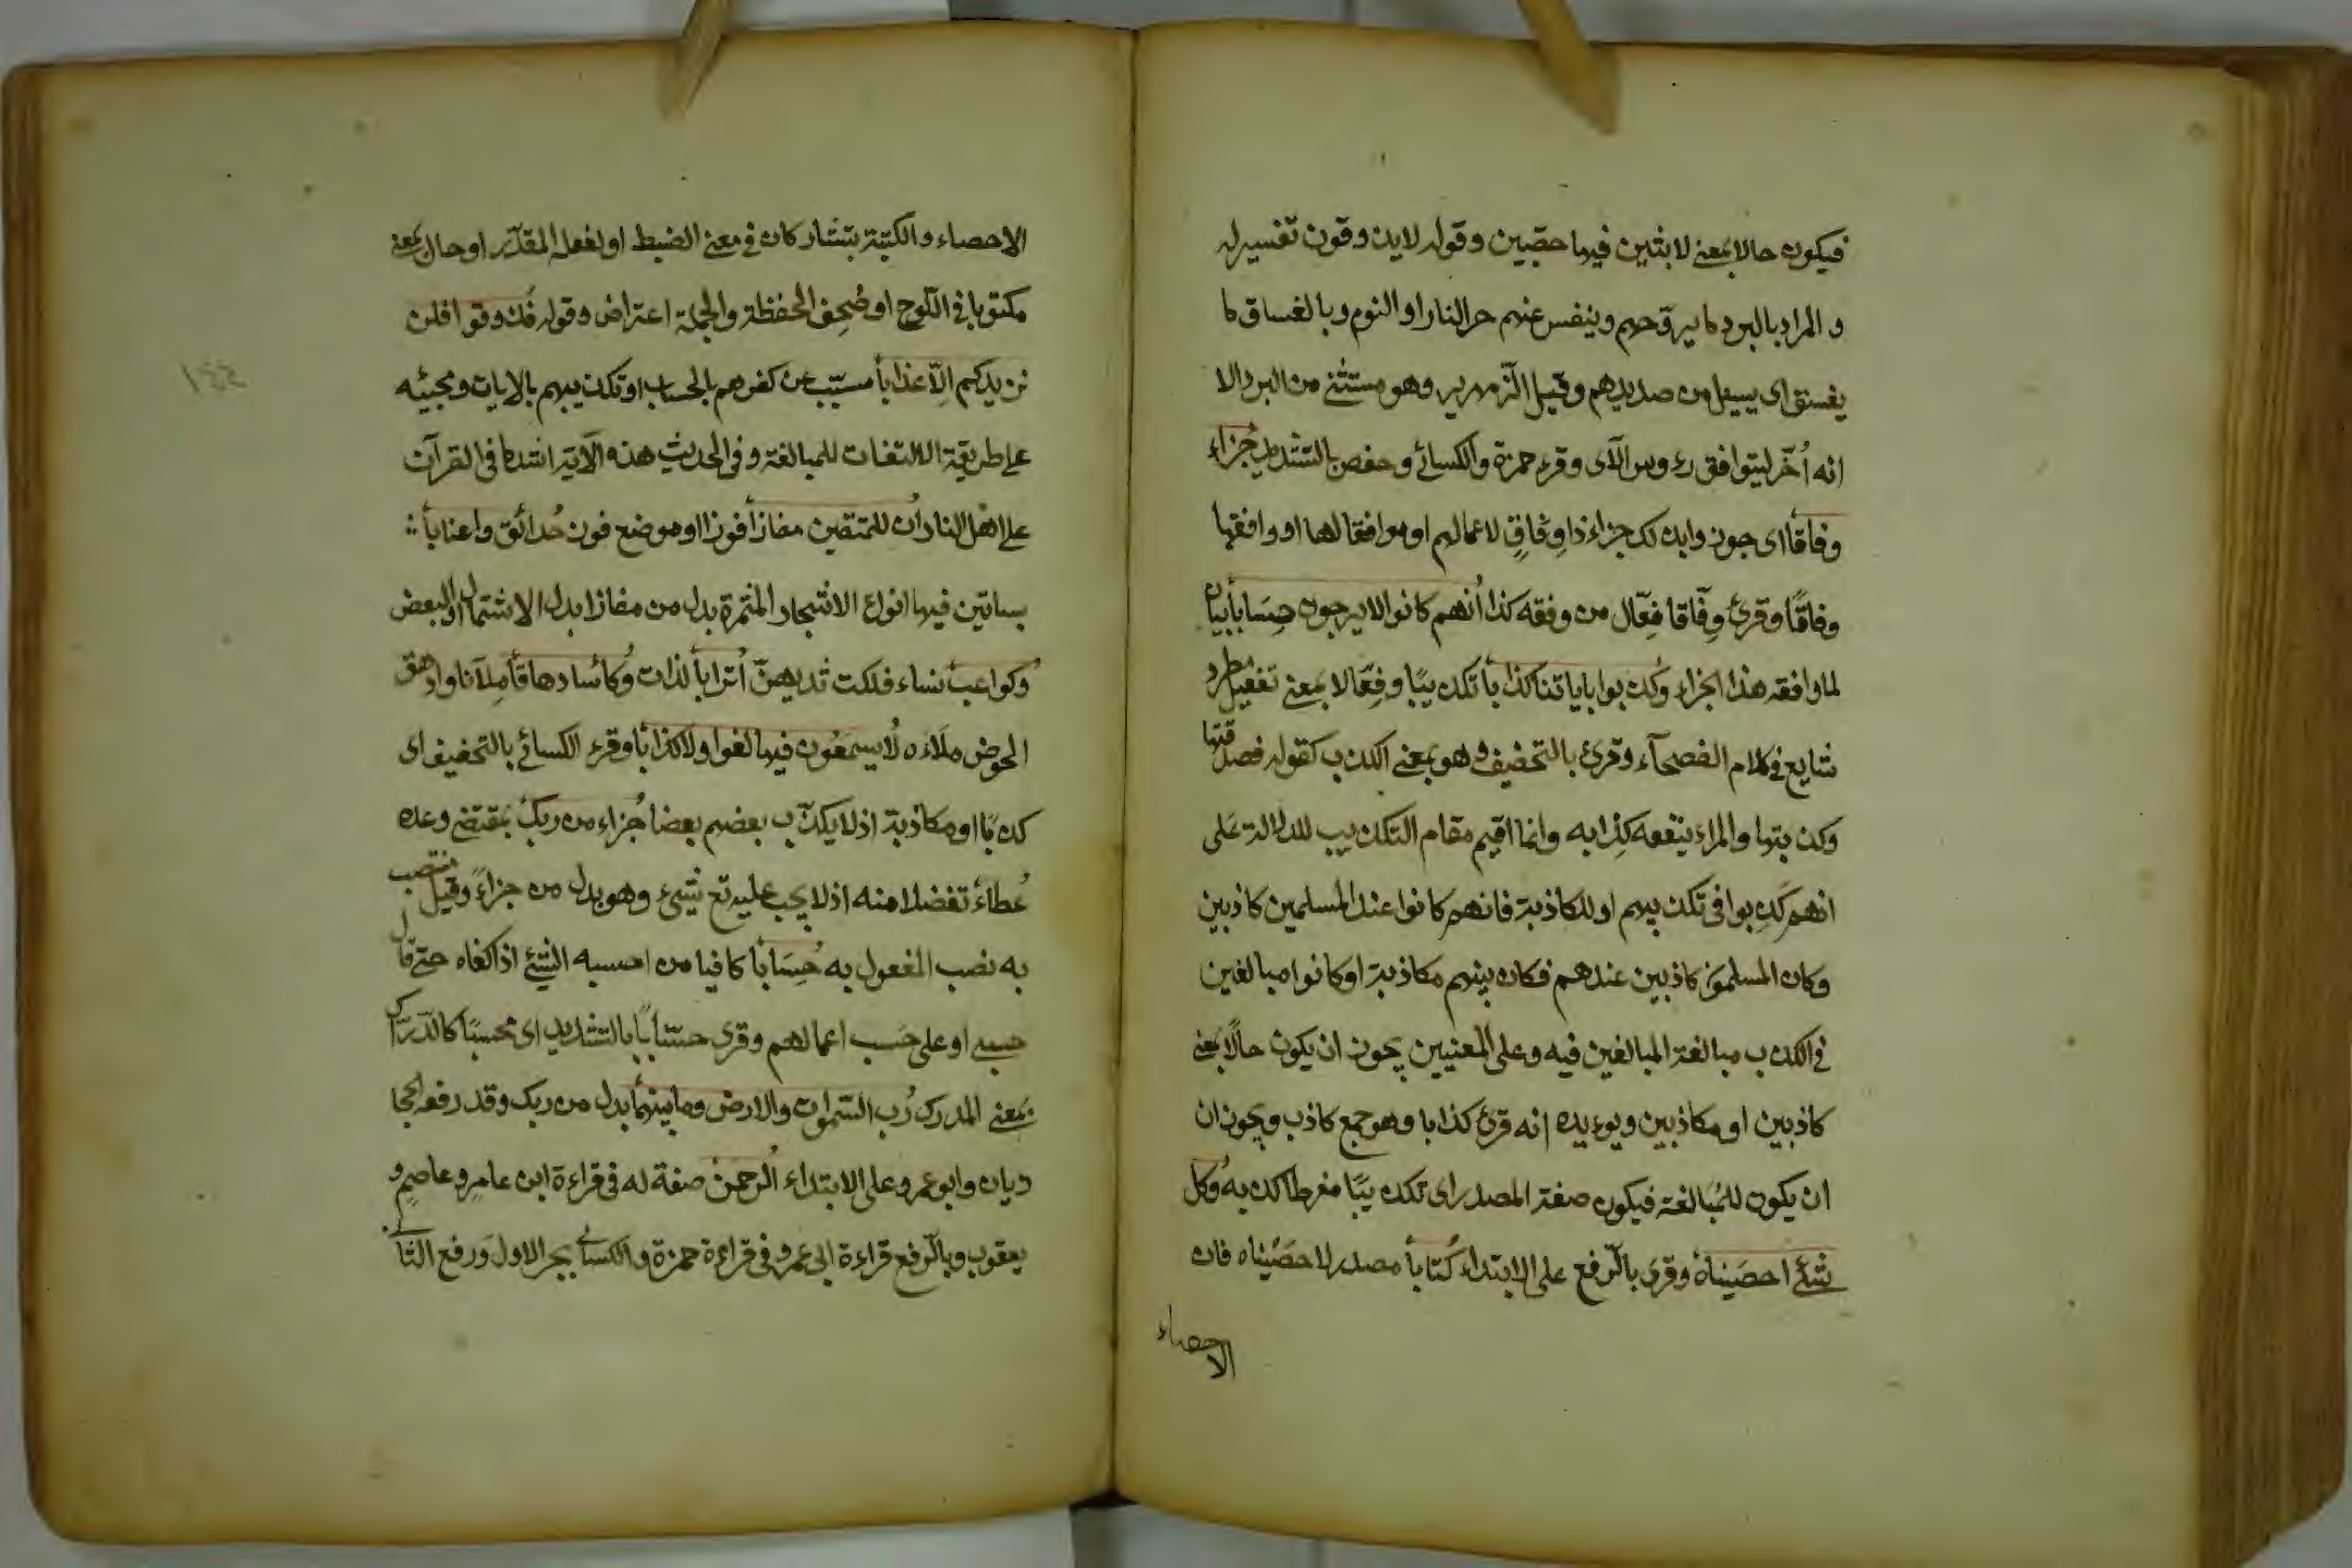 فيكون حالا بمعنى لابثين فيها حقبين وقوله لايذوقون تفسير له
و المراد بالبرد ما يروّحهم وينفس عنهم حر النار او النوم وبالغساق ما
يغسق اى يسيل من صديدهم وقيل الزّمهرير وهو مستثنى من البرد الا
انه أُخّر ليتوافق رءوس الآى وقرء حمزة والكسائى وحفص بالتشديد جزاء
وفاقا اى جوزوا بذلك جزاء ذا وِفَاقٍ لاعمالهم او موافقا لها او وافقها
وفاقًا وقرئ وِفّاقا فِعّال من وفقه كذا انهم كانوا لا يرجون حِسَابا بيان
لما وافقه هذا الجزاء وكذبوا باياتنا كذابا تكذيبًا وفِعّالا بمعنى تفعيل مطرد
شايع فى كلام الفصحآء وقرئ بالتخفيف و هو بمعنى الكذب كقوله فصدقتها
وكذبتها والمرء ينفعه كِذَابه وانما اقيم مقام التكذيب للدلالة عَلى
انهم كَذِبوا فى تكذيبهم او المكاذبة فانهم كانوا عند المسلمين كاذبين
وكان المسلمون كاذبين عندهم فكان بينهم مكاذبة او كانوا مبالغين
فى الكذب مبالغة المبالغين فيه وعلى المعنيين يجوز ان يكون حالًا بمعنى
كاذبين او مكاذبين ويوءيده انه قرئ كذابا وهو جمع كاذب ويجوز ان
ان يكون للمُبَالغة فيكون صفة المصدر اى تكذيبًا مفرطا كذبه وكل
شئ احصَيناهُ وقرى بالرّفع على الابتداء كتابا مصدر لاحصَيْناه فان
الاحصاء
الاحصاء والكتبة يتشاركان فى معنى الضبط او لفعله المقدّر او حال بمعنى
مكتوبا فى اللّوح او صُحِف الحفظة والجملة اعتراض وقوله فذوقوا فلن
نزيدكم الّا عذابا مسبّب عن كفرهم بالحساب او تكذيبهم بالايات ومجيئه
على طريقة الالتفات للمبالغة وفى الحديث هذه الآية اشد ما فى القرآن
على اهل النار ان للمتقين مفازا فوزا او موضع فوز حدائق واعنابا
بساتين فيها انواع الاشجار المثمرة بدل من مفازا بدل الاشتمال او البعض
وكواعب نساء فلكت ثديهنّ أترابا لذات وكأسا دهاقا مِلآنا وادهق
الحوض ملاءه لا يسمعون فيها لغوا ولا كذابا وقرء الكسائى بالتخفيف اى
كذبًا او مكاذبة اذ لا يكذّب بعضهم بعضا جزاء من ربك بمقتضى وعده
عطاء تفضلا منه اذ لا يجب عليه تع شىء وهو بدل من جزاءً وقيل منتصب
به نصب المفعول به حِسَابا كافيا من احسبه الشئ اذا كفاه حتى قال
حسبى او على حَسب اعمالهم وقرى حسَّابًا بالتشديد اى محسبًا كالدّرّاك
بمعنى المدرك رب السّموات والارض وما بينهما بدل من ربك وقد رفعه الحجا
ديان وابو عمرو على الابتداء الرحمن صفة له فى قراءة ابن عامر و عاصم و
يعقوب وبالرّفع قراءة ابى عمرو فى قراءة حمزة والكسائى بجر الاول ورفع الثانى